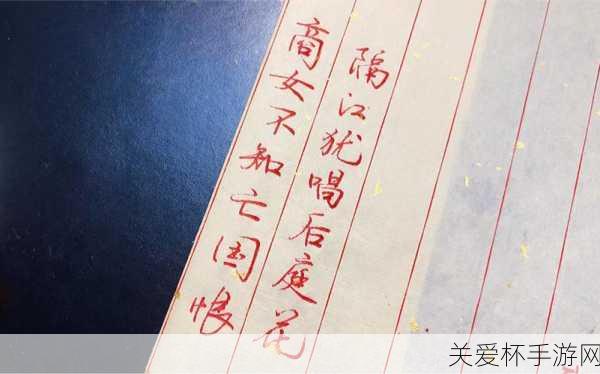 商女不知亡国恨
隔江犹唱后庭花
关爱杯手游网